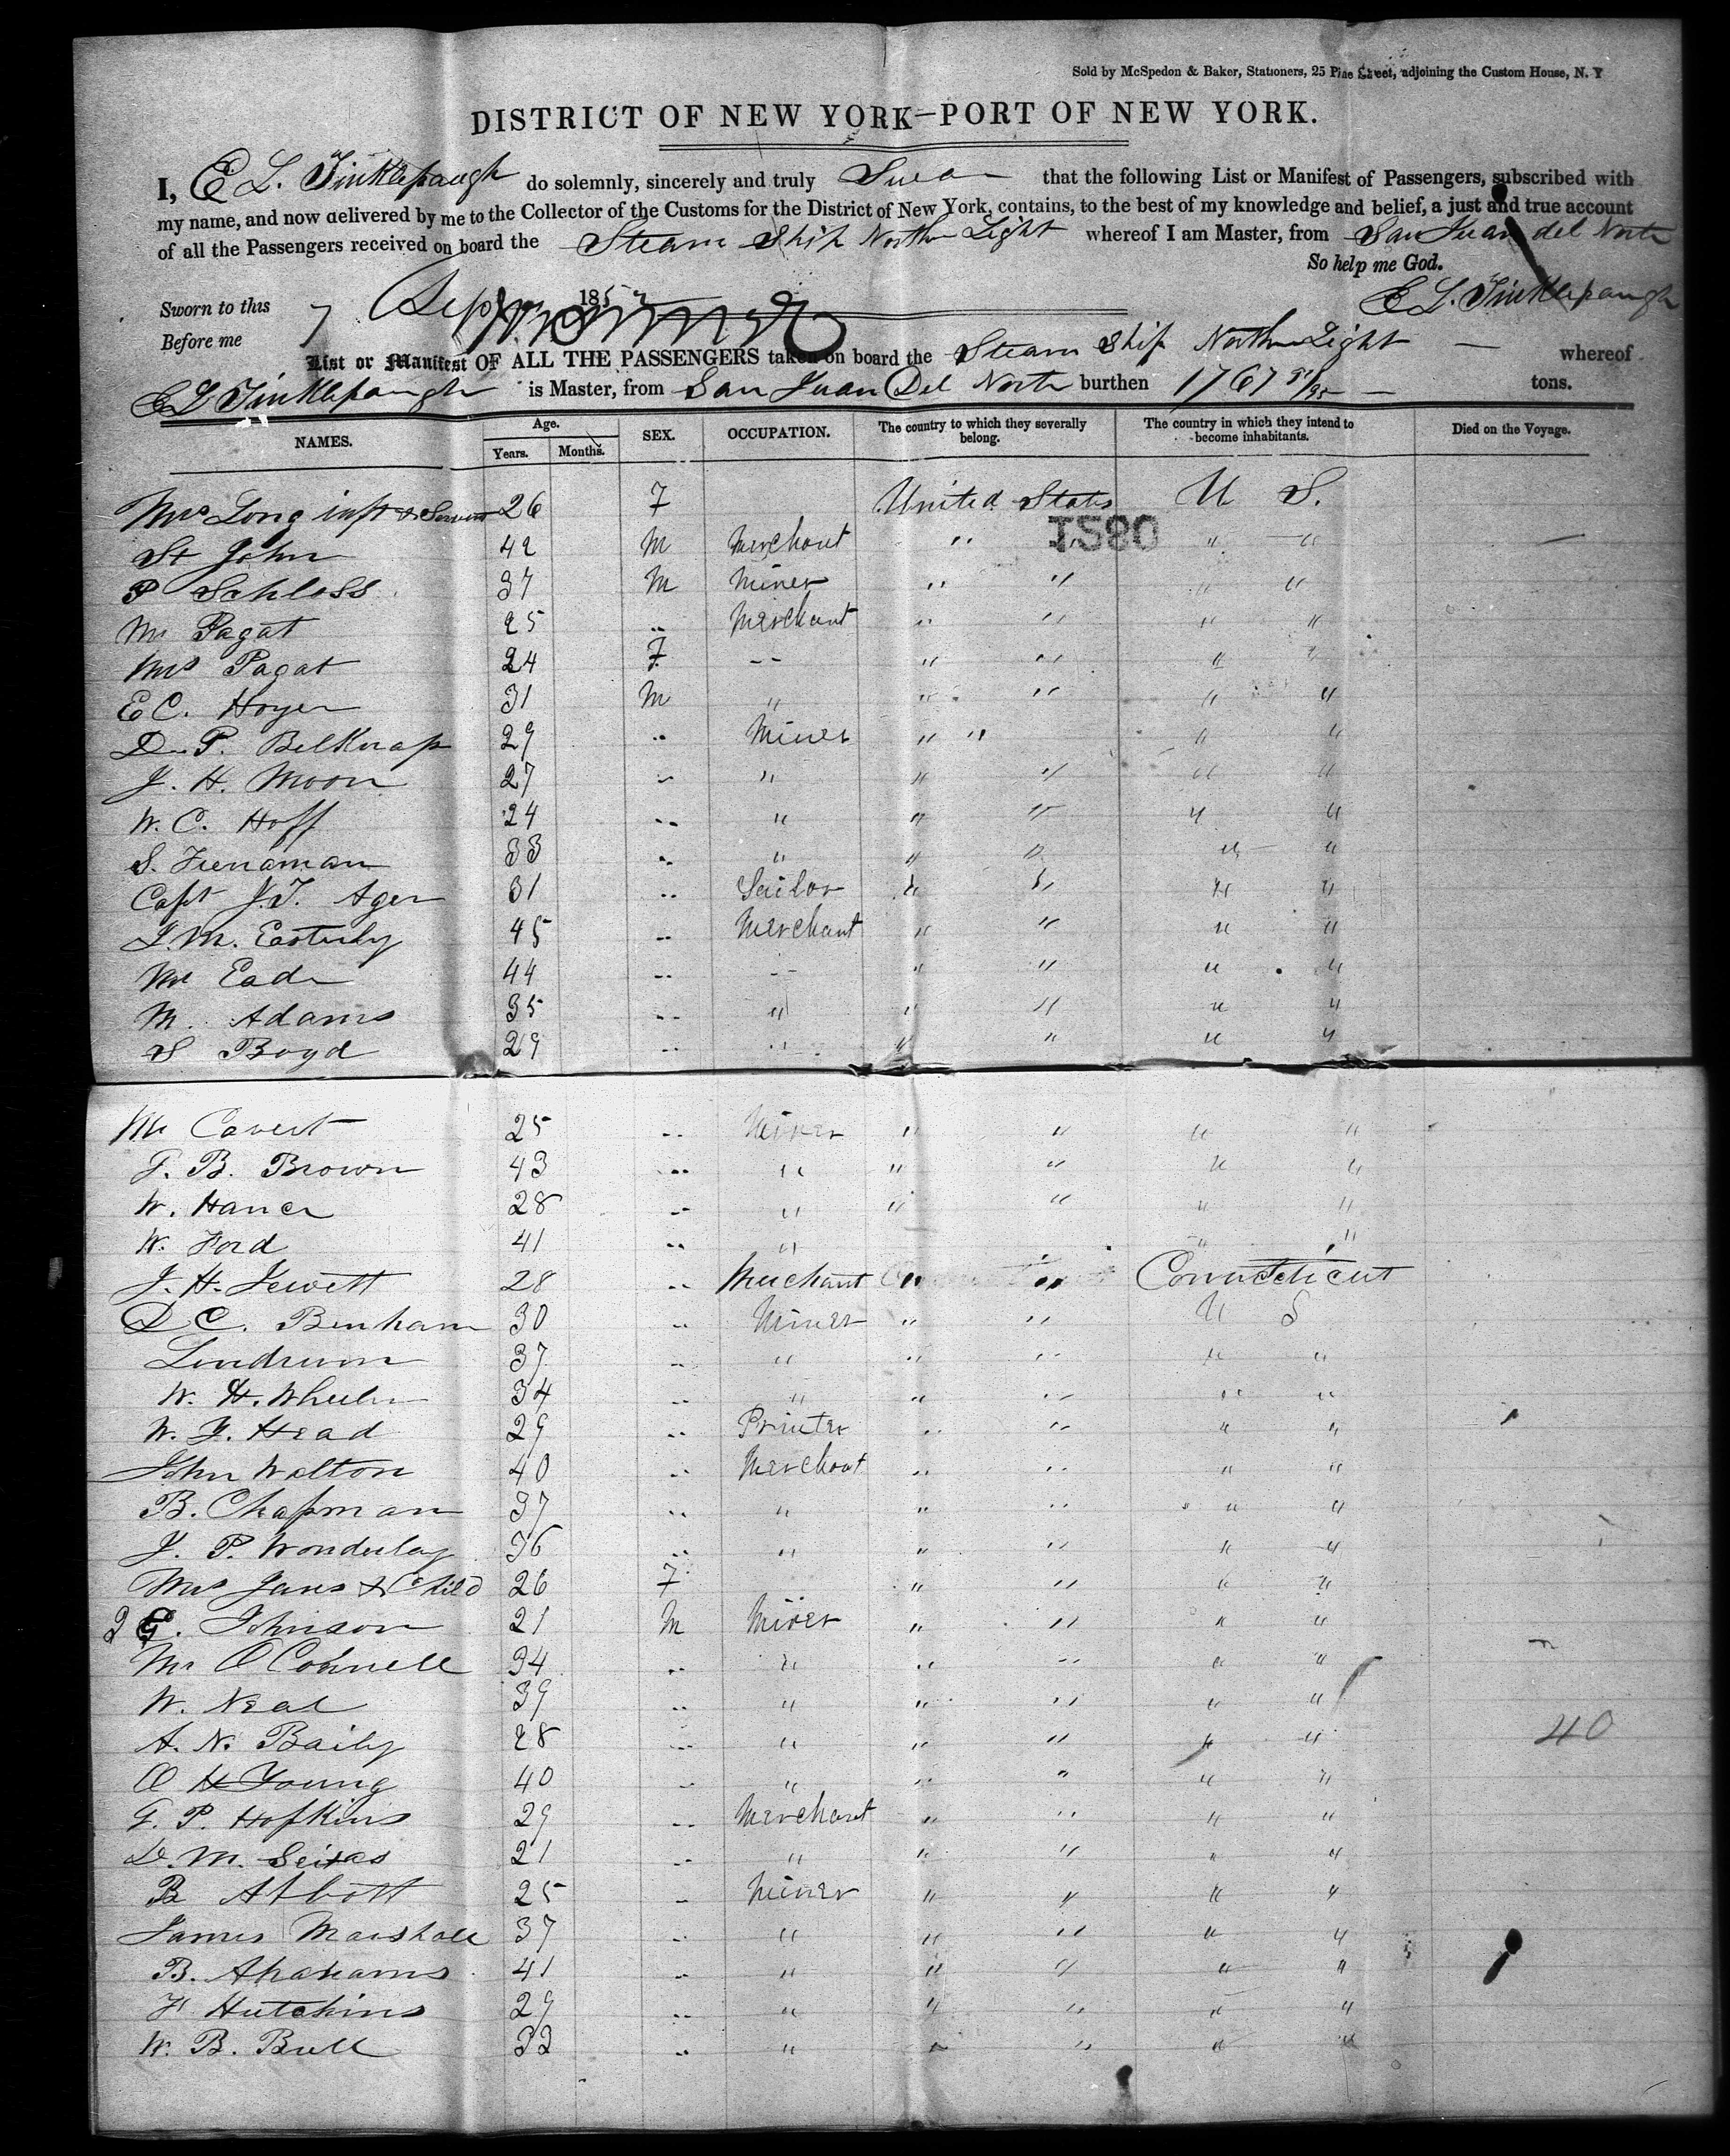 Sold by McSpedon & Baker, Stationers, 25 Pine Street, adjoining the Custom House, N. Y
DISTRICT OF NEW YORK—PORT OF NEW YORK.
I, E L. Tinklepaugh do solemnly, sincerely and truly Swear that the following List or Manifest of Passengers, subscribed with
my name, and now delivered by me to the Collector of the Customs for the District of New York, contains, to the best of my knowledge and belief, a just and true account
of all the Passengers received on board the Steam Ship Northern Light whereof I am Master, from San Juan del Norte
So help me God.
Sworn to this 7 Sep 185
E L. Tinklepaugh
Before me
List or Manifest OF ALL THE PASSENGERS taken on board the Steam Ship Northern Light — whereof
E L Tinklepaugh is Master, from San Juan Del Norte burthen 1767 /95 — tons.
NAMES. Age. Years. Months. SEX. OCCUPATION. The country to which they severally belong. The country in which they intend to become inhabitants. Died on the Voyage.
Mrs Long inft & Servant 26 F United States U S.
St John 42 M Merchant " " " " —
P Schloss 37 M Miner " " " "
Mr Pagat 25 " Merchant " " " "
Mrs Pagat 24 F -- " " " "
E C. Hoyer 31 M " " " " "
D. P. Belknap 29 " Miner " " " "
J. H. Moon 27 " " " " " "
W. C. Hoff 24 " " " " " "
S. 33 " " " " " "
Capt J. T. Ager 31 " Sailor " " " "
L. M. Easterby 45 " Merchant " " " "
Mr Eade 44 " -- " " " "
M. Adams 35 " " " " " "
S Boyd 29 " " " " " "
Mr Cavert 25 " Miner " " " "
T. B. Brown 43 " " " " " "
W. Hance 28 " " " " " "
W. Ford 41 " " " "
J. H. Jewett 28 " Merchant " " Connecticut
D C. Benham 30 " Miner " " U S
Lindrum 37 " " " " " "
W. H. Wheeler 34 " " " " " "
W. F. Head 29 " Printer " " " "
John Walton 40 " Merchant " " " "
B. Chapman 37 " " " " " "
J. P. Wonderlay 36 " " " " " "
Mrs Janes & Child 26 F " " " "
2 G. Johnson 21 M Miner " " " "
Mr O Connell 34 " " " " " "
W. Neal 39 " " " " " "
A. N. Baily 28 " " " " " " 40
O H Young 40 " " " " " "
G. P. Hopkins 29 " Merchant " " " "
D. M. Seixas 21 " " " " " "
B Abbott 25 " Miner " " " "
James Marshall 37 " " " " " "
B. Abrahams 41 " " " " " "
F Hutchins 29 " " " " " "
W. B. Bull 33 " " " " " "